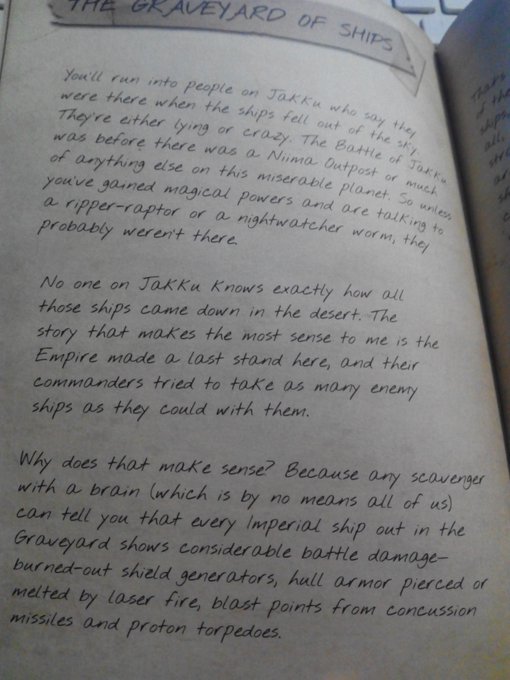 THE GRAVEYARD OF SHIPS
You'll run into people on Jakku who say they
were there when the ships fell out of the sky.
They're either lying or crazy. The Battle of Jakku
was before there was a Niima Outpost or much
of anything else on this miserable planet. So unless
you've gained magical powers and are talking to
a ripper-raptor or a nightwatcher worm, they
probably weren't there.
No one on Jakku knows exactly how all
those ships came down in the desert. The
story that makes the most sense to me is the
Empire made a last stand here, and their
commanders tried to take as many enemy
ships as they could with them.
Why does that make sense? Because any scavenger
with a brain (which is by no means all of us)
can tell you that every Imperial ship out in the
Graveyard shows considerable battle damage–
burned-out shield generators, hull armor pierced or
melted by laser fire, blast points from concussion
missiles and proton torpedoes.